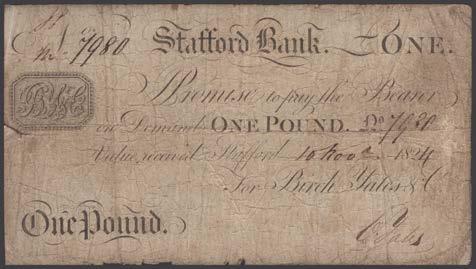 No. 7980 Stafford Bank. ONE.
I Promise to pay the Bearer
on Demand ONE POUND. No 7980
Value received Stafford 10 Novr 1824
For Birch Yates & Co
One Pound.
Yates